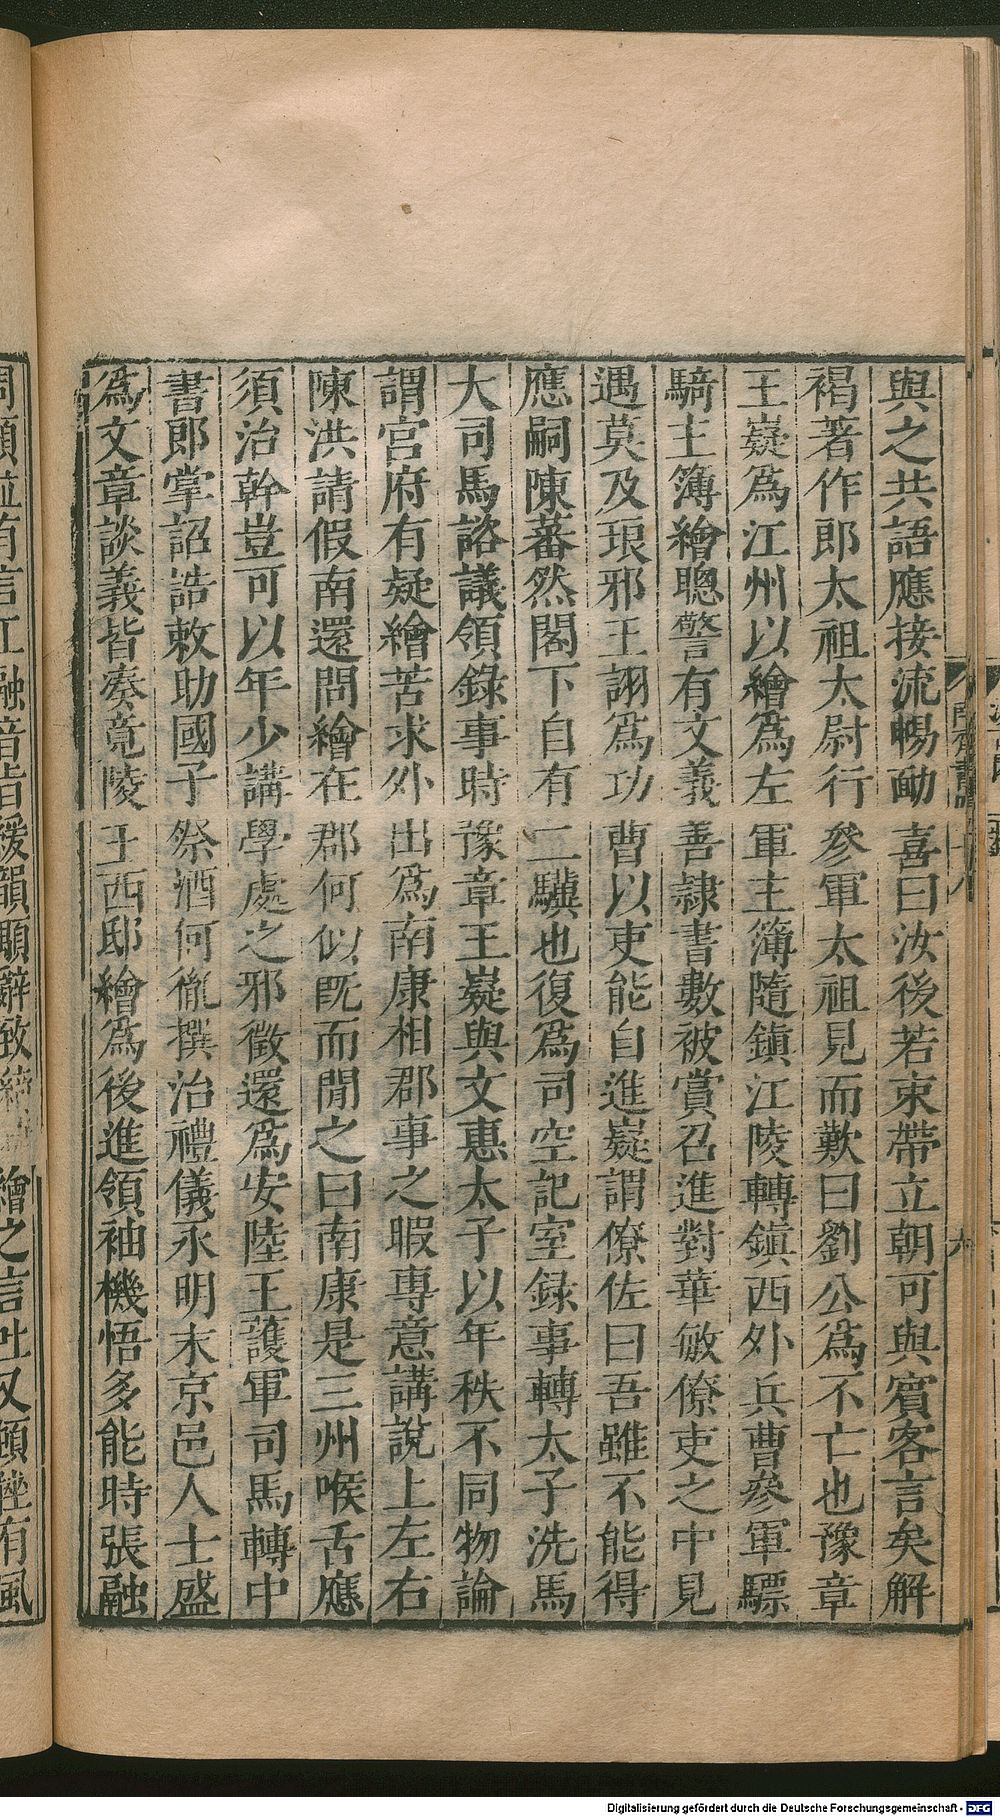 與之共語應接流暢勔喜曰汝後若束帶立朝可與賓客言矣解
褐著作郎太祖太尉行參軍太祖見而歎曰劉公爲不亡也豫章
王嶷爲江州以繪爲左軍主簿隨鎭江陵轉鎭西外兵曹參軍驃
騎主簿繪聰警有文義善隷書數被賞召進對華敏僚吏之中見
遇莫及琅邪王詡爲功曹以吏能自進嶷謂僚佐曰吾雖不能得
應嗣陳蕃然閤下自有二驥也復爲司空記室錄事轉太子洗馬
大司馬諮議領錄事時豫章王嶷與文惠太子以年秩不同物論
謂宮府有疑繪苦求外出爲南康相郡事之暇專意講說上左右
陳洪請假南還問繪在郡何似既而閒之曰南康是三州喉舌應
須治幹豈可以年少講學處之邪徵還爲安陸王護軍司馬轉中
書郎掌詔誥敕助國子祭酒何胤撰治禮儀永明末京邑人士盛
爲文章談義皆湊竟陵王西邸繪爲後進領袖機悟多能時張融
周顒竝有言工融音旨緩韻顒辭致綺 繪之言吐又頓挫有風
Digitalisierung gefördert durch die Deutsche Forschungsgemeinschaft - DFG